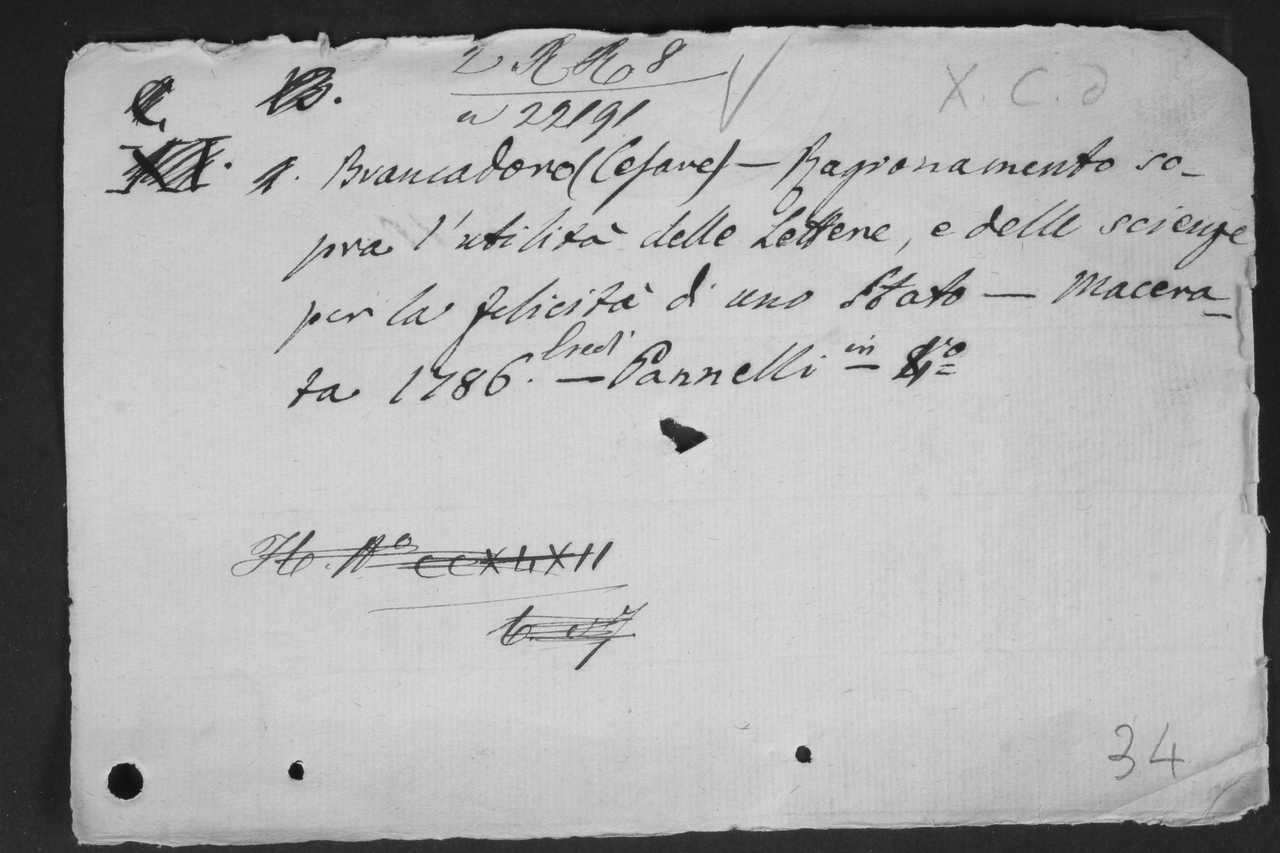 2 R R 8
X. C. d
n 22191
B.
1. Brancadoro (Cesare) — Ragionamento so-
pra l'utilità delle Lettere, e delle scienze
per la felicità di uno Stato — Macera-
ta 1786. — Eredi Pannelli — in 4º
H. Nº
34